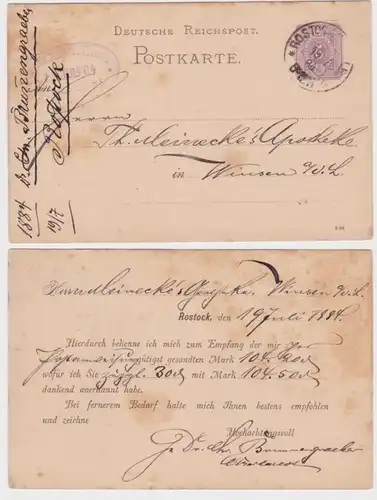 DEUTSCHE REICHSPOST.
POSTKARTE.
An
Herrn
Th. Meinecke's Apotheke
in Winsen a/d. L.
Rostock
1884
19/7
ROSTOCK
Herrn Meinecke's Winsen a/d. L.
Rostock, den 19 Juli 1884.
Hierdurch bekenne ich mich zum Empfang der mir per
Postanweisung gütigst gesandten Mark 104.20
wofür ich Sie zuzgl. 30 mit Mark 104.50
dankend anerkannt habe.
Bei fernerem Bedarf halte mich Ihnen bestens empfohlen
und zeichne
Hochachtungsvoll
Dr. Chr. Brunnengraeber